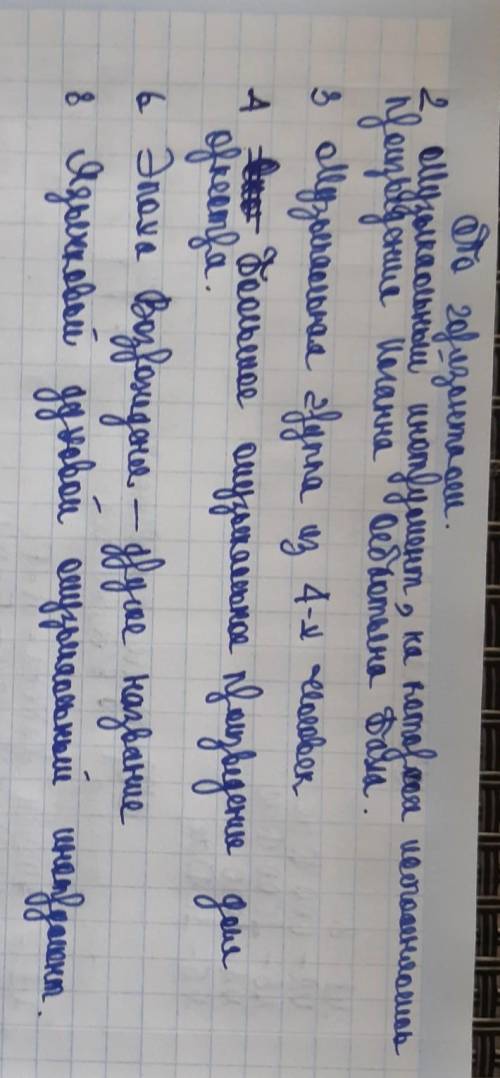 По горизонтали.
2 Музыкальный инструмент, на котором исполнялись
произведения Иоганна Себастьяна Баха.
3 Музыкальная группа из 4-х человек
4 Большое музыкальное произведение для
оркестра.
6 Эпоха Возрождения — другое название
8 Язычковый духовой музыкальный инструмент.